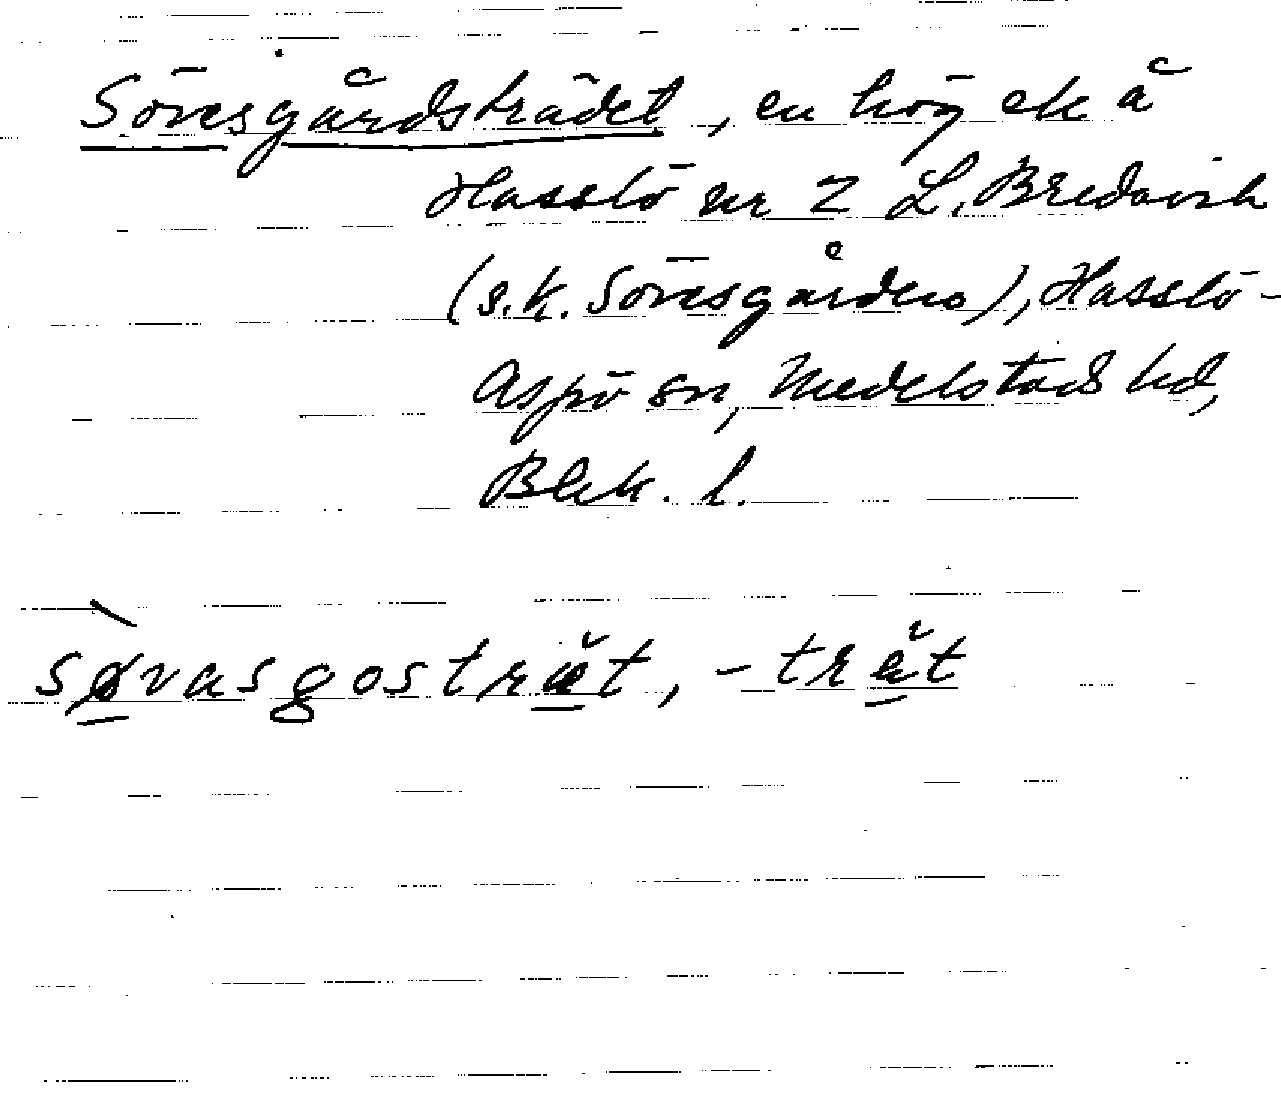 Sövesgårdsträdet, en hög ek å
Hasslö nr 2 L. Bredavik
(s.k. Sövesgården), Hasslö-
Aspö sn, Medelstads hd,
Blek. l.
søvasgostræt, -trät